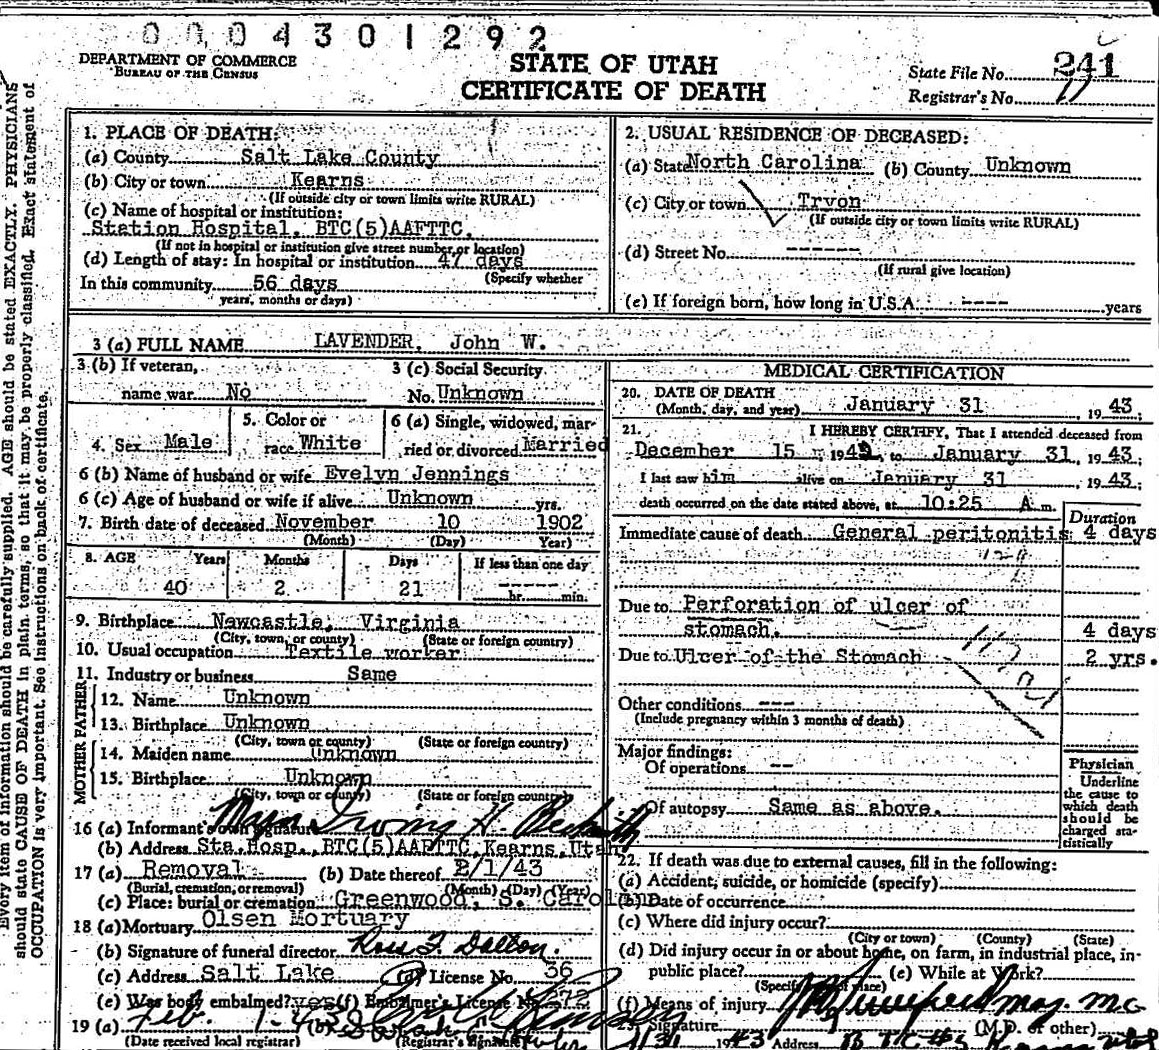 0004301292
DEPARTMENT OF COMMERCE
BUREAU OF THE CENSUS
STATE OF UTAH
CERTIFICATE OF DEATH
State File No. 241
Registrar's No. 11
Every item of information should be carefully supplied. AGE should be stated EXACTLY. PHYSICIANS
should state CAUSE OF DEATH in plain terms, so that it may be properly classified. Exact statement of
OCCUPATION is very important. See instructions on back of certificate.
1. PLACE OF DEATH:
(a) County Salt Lake County
(b) City or town Kearns
(If outside city or town limits write RURAL)
(c) Name of hospital or institution:
Station Hospital, BTC(5)AAFTTC,
(If not in hospital or institution give street number or location)
(d) Length of stay: In hospital or institution 47 days
(Specify whether
In this community 56 days
years, months or days)
2. USUAL RESIDENCE OF DECEASED:
(a) State North Carolina (b) County Unknown
(c) City or town Tryon
(If outside city or town limits write RURAL)
(d) Street No. ------
(If rural give location)
(e) If foreign born, how long in U.S.A. ---- years
3 (a) FULL NAME LAVENDER, John W.
3 (b) If veteran,
name war No
3 (c) Social Security
No. Unknown
4. Sex Male
5. Color or
race White
6 (a) Single, widowed, mar-
ried or divorced Married
6 (b) Name of husband or wife Evelyn Jennings
6 (c) Age of husband or wife if alive Unknown yrs.
7. Birth date of deceased November 10 1902
(Month) (Day) Year)
8. AGE Years Months Days If less than one day
40 2 21 ----- hr. min.
9. Birthplace Newcastle, Virginia
(City, town, or county) (State or foreign country)
10. Usual occupation Textile worker
11. Industry or business Same
FATHER
12. Name Unknown
13. Birthplace Unknown
(City, town or county) (State or foreign country)
MOTHER
14. Maiden name Unknown
15. Birthplace Unknown
(City, town or county) (State or foreign country)
16 (a) Informant's own signature Major Irving H.
(b) Address Sta.Hosp., BTC(5)AAFTTC, Kearns, Utah
17 (a) Removal (b) Date thereof 2/1/43
(Burial, cremation, or removal) (Month) (Day) (Year)
(c) Place: burial or cremation Greenwood, S. Carolina
18 (a) Mortuary Olsen Mortuary
(b) Signature of funeral director Ross F. Dalton
(c) Address Salt Lake (d) License No. 36
(e) Was body embalmed? yes (f) Embalmer's License No. 72
19 (a) Feb. 1-43 (b)
(Date received local registrar) (Registrar's signature)
MEDICAL CERTIFICATION
20. DATE OF DEATH
(Month, day, and year) January 31, 1943;
21. I HEREBY CERTIFY, That I attended deceased from
December 15, 1942, to January 31, 1943;
I last saw him alive on January 31, 1943;
death occurred on the date stated above, at 10:25 A m.
Duration
Immediate cause of death General peritonitis 4 days
Due to Perforation of ulcer of
stomach. 4 days
Due to Ulcer of the Stomach 2 yrs.
Other conditions ---
(Include pregnancy within 3 months of death)
Major findings:
Of operations --
Of autopsy Same as above.
Physician
Underline
the cause to
which death
should be
charged sta-
tistically
22. If death was due to external causes, fill in the following:
(a) Accident, suicide, or homicide (specify)
(b) Date of occurrence
(c) Where did injury occur?
(City or town) (County) (State)
(d) Did injury occur in or about home, on farm, in industrial place, in-
public place? (e) While at Work?
(Specify type of place)
(f) Means of injury
23. Signature Maj. MC
(M.D. or other)
1/31 1943 Address BTC #5 Kearns Utah